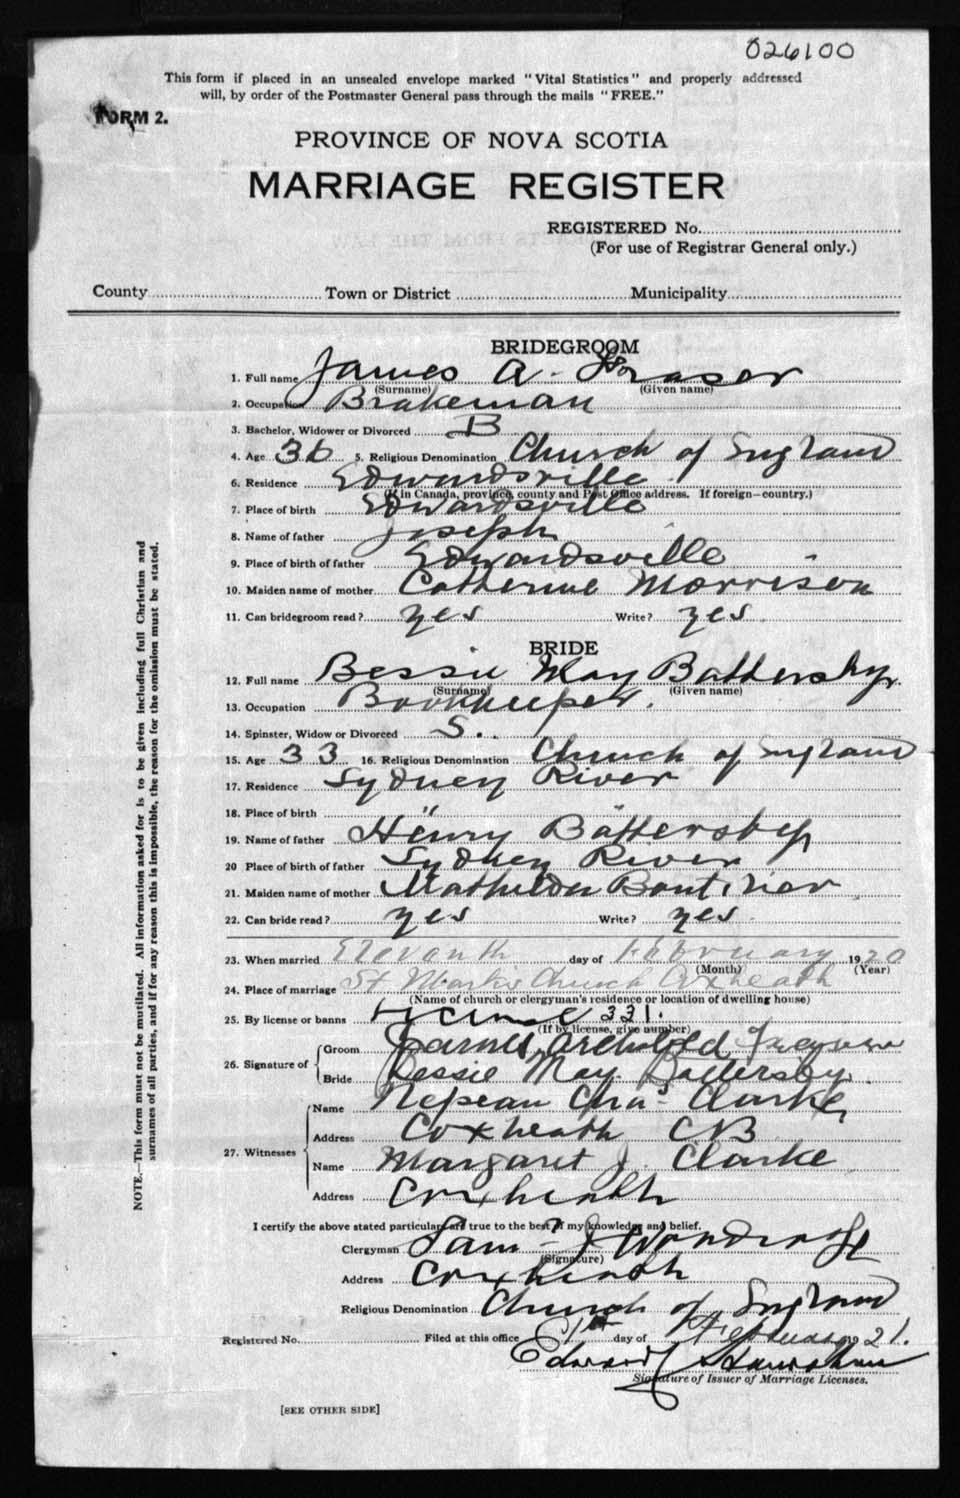 026100
This form if placed in an unsealed envelope marked "Vital Statistics" and properly addressed
will, by order of the Postmaster General pass through the mails "FREE."
FORM 2.
PROVINCE OF NOVA SCOTIA
MARRIAGE REGISTER
REGISTERED No.
(For use of Registrar General only.)
County Town or District Municipality
BRIDEGROOM
1. Full name James A. Fraser
(Surname) (Given name)
2. Occupation Brakeman
3. Bachelor, Widower or Divorced B
4. Age 36 5. Religious Denomination Church of England
6. Residence Edwardsville
(If in Canada, province, county and Post Office address. If foreign—country.)
7. Place of birth Edwardsville
8. Name of father Joseph
9. Place of birth of father Edwardsville
10. Maiden name of mother Catherine Morrison
11. Can bridegroom read? yes Write? yes
BRIDE
12. Full name Bessie May Battersby
(Surname) (Given name)
13. Occupation Bookkeeper.
14. Spinster, Widow or Divorced S.
15. Age 33 16. Religious Denomination Church of England
17. Residence Sydney River
18. Place of birth " "
19. Name of father Henry Battersby
20 Place of birth of father Sydney River
21. Maiden name of mother Mathilda Boutilier
22. Can bride read? yes Write? yes
23. When married Eleventh day of February 1920
(Month) (Year)
24. Place of marriage St Mark's Church Coxheath
(Name of church or clergyman's residence or location of dwelling house)
25. By license or banns License 331.
(If by license, give number)
26. Signature of
Groom James Archibald
Bride Bessie May Battersby.
27. Witnesses
Name Nepean Chas Clarke
Address Coxheath CB
Name Margaret J. Clarke
Address Coxheath
I certify the above stated particulars are true to the best of my knowledge and belief.
Clergyman Saml J Woodroofe
(Signature)
Address Coxheath
Religious Denomination Church of England
Registered No. Filed at this office day of February 1921.
Edward
Signature of Issuer of Marriage Licenses.
[SEE OTHER SIDE]
NOTE.—This form must not be mutilated. All information asked for is to be given including full Christian and
surnames of all parties, and if for any reason this is impossible, the reason for the omission must be stated.